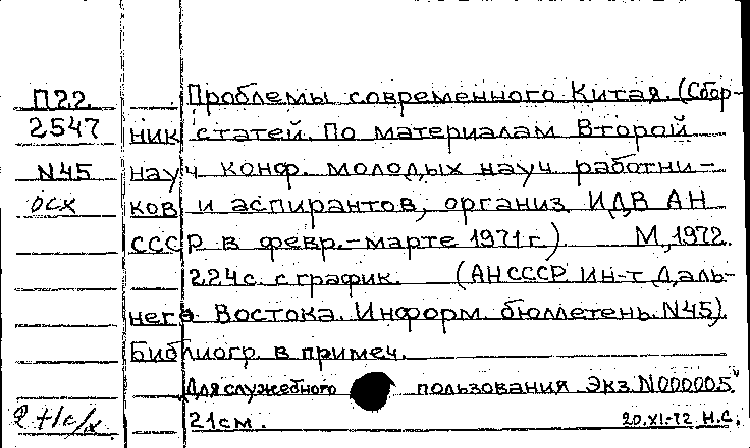 П22 Проблемы современного Китая. (Сбор-
2547 ник статей. По материалам Второй
N45 науч конф. молодых науч работни-
осх ков и аспирантов, организ. ИДВ АН
СССР в февр.-марте 1971г.) М, 1972.
224с. с график. (АН СССР. Ин-т Даль-
него Востока. Информ. бюллетень. N45).
Библиогр. в примеч.
Для служебного пользования. Экз. N000005."
21см. 20.XI-72 Н.С.